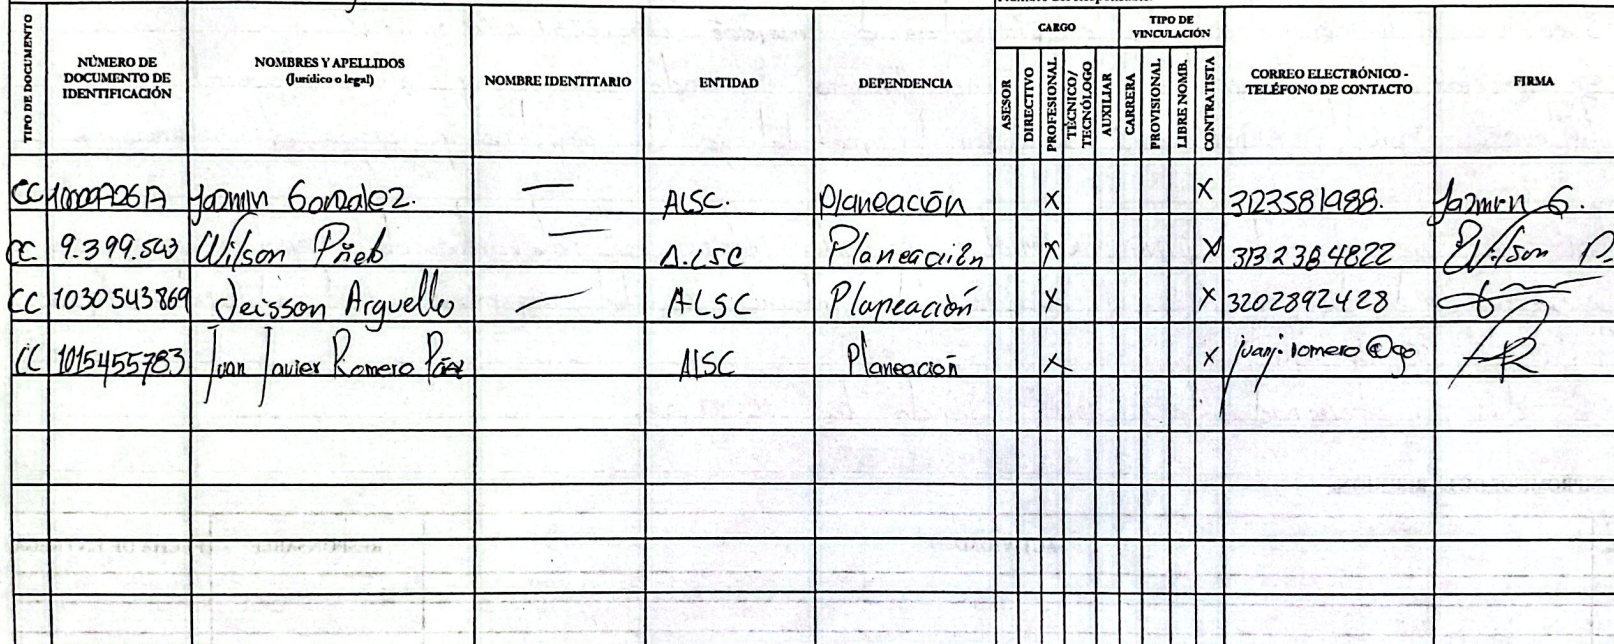 CARGO
TIPO DE VINCULACIÓN
TIPO DE DOCUMENTO
NÚMERO DE DOCUMENTO DE IDENTIFICACIÓN
NOMBRES Y APELLIDOS (Jurídico o legal)
NOMBRE IDENTITARIO
ENTIDAD
DEPENDENCIA
ASESOR
DIRECTIVO
PROFESIONAL
TÉCNICO/ TECNÓLOGO
AUXILIAR
CARRERA
PROVISIONAL
LIBRE NOMB.
CONTRATISTA
CORREO ELECTRÓNICO - TELÉFONO DE CONTACTO
FIRMA
CC Gonzalez. — ALSC. Planeación X X 3123581988. Jazmin G.
CC 9.399.543 Wilson — A.LSC Planeación X X 3132384822 Wilson P.
CC 1030543869 Jeisson Arguello — ALSC Planeación X X 3202892428
CC 1015455783 Juan Javier Romero ALSC Planeación X X juanj.romero@go